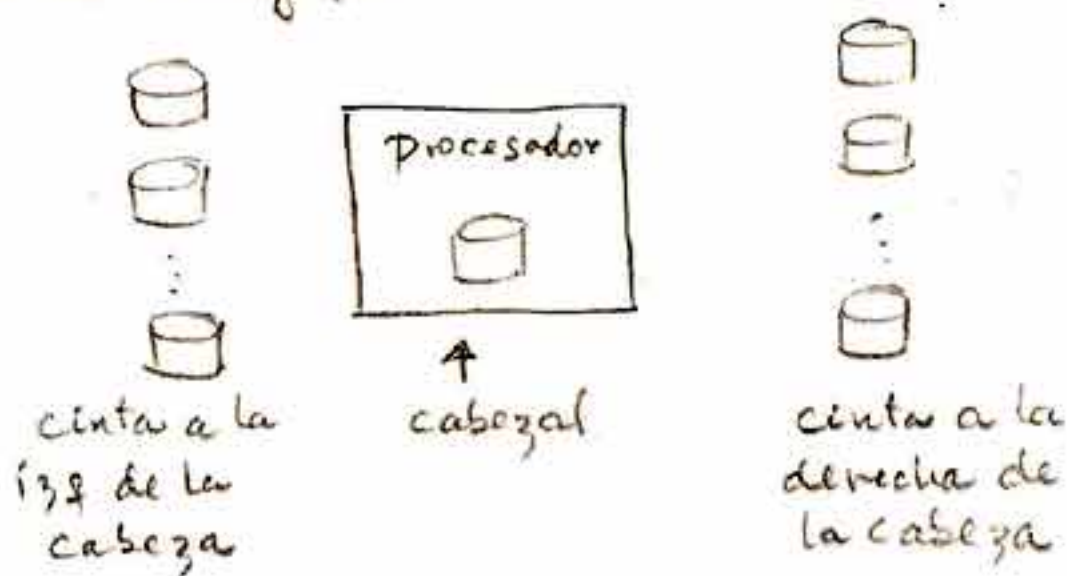 Procesador
cinta a la
izq de la
cabeza
cabezal
cinta a la
derecha de
la cabeza